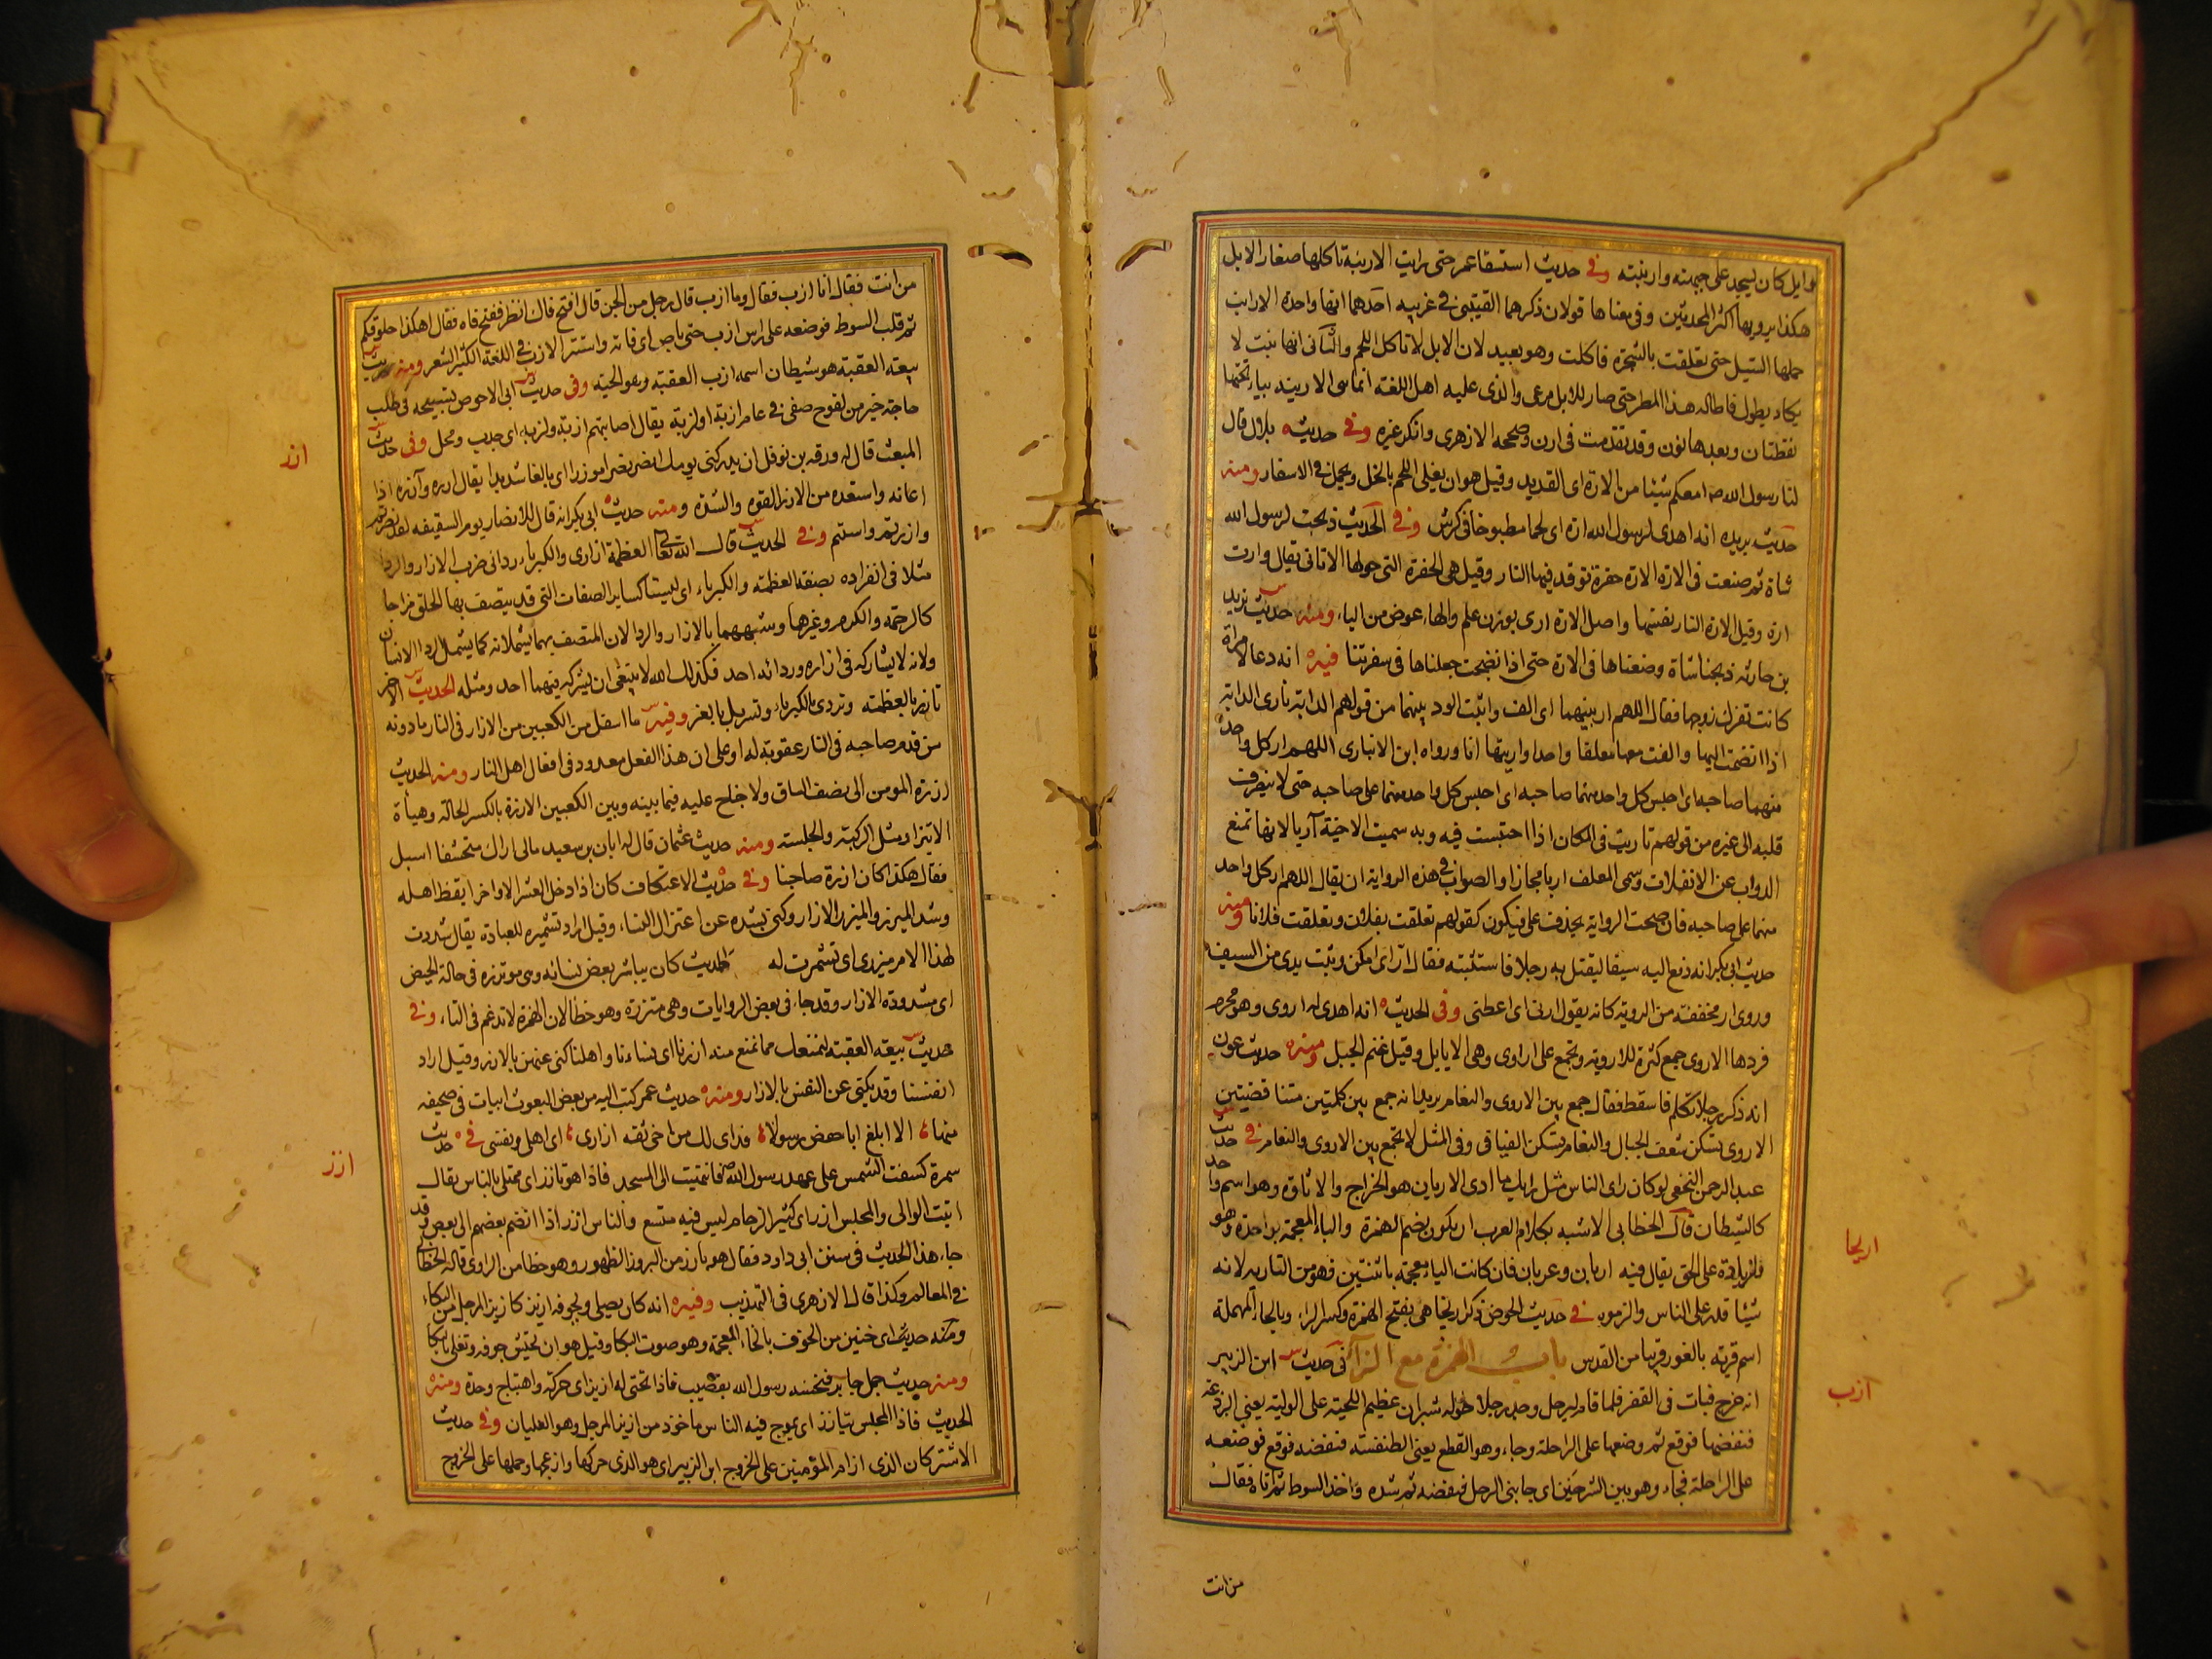 وايل كان يسجد على جبهته وارنبته وفي حديث استسقا عمر حتى رايت الارنبة تاكلها صغار الابل
هكذا يرويها اكثر المحدثين وفي معناها قولان ذكرهما القيتبى في غريبه احدهما انها واحدة الارانب
حملها السيل حتى تعلقت بالشجرة فاكلت وهو بعيد لان الابل لا تاكل اللحم والثاني انها نبت لا
يكاد يطول فاطاله هذا المطر حتى صار للابل مرعى والذي عليه اهل اللغة انما هي الارينة بياء تحتها
نقطتان وبعدها نون وقد تقدمت في ارن وصححه الازهري وانكر غيره وفي حديث بلال قال
لنا رسول الله ص امعكم شيئا من الارة اى القديد وقيل هو ان يغلى اللحم بالخل ويحمل في الاسفار ومنه
حديث بريده انه اهدى لرسول الله ارة اى لحما مطبوخا في كرش وفي الحديث ذبحت لرسول الله
شاة ثم صنعت في الارة الارة حفرة توقد فيها النار وقيل هى الحفرة التى حولها الاثافى يقال وارت
ارة وقيل الارة النار نفسها واصل الارة ارى بوزن علم والهاء عوض من الياء ومنه حديث زيد
بن حارثه ذبحنا شاة وضعناها فى الارة حتى اذا نضجت جعلناها فى سفرتنا فيه انه دعا لامراة
كانت تفرك زوجها فقال اللهم ار بينهما اى الف واثبت الود بينهما من قولهم الدابة تارى الدابة
اذا انضمت اليها والفت معها معلفا واحدا واريتها انا ورواه ابن الانبارى اللهم ار كل واحد
منهما صاحبه اى احبس كل واحد منهما صاحبه اى احبس كل واحد منهما على صاحبه حتى لا ينصرف
قلبه الى غيره من قولهم تاريت في المكان اذا احتبست فيه وبه سميت الاخية آريا لانها تمنع
الدواب عن الانفلات وسمى المعلف اريا مجازا والصواب في هذه الرواية ان يقال اللهم ار كل واحد
منهما على صاحبه فان صحت الرواية بحذف على فيكون كقولهم تعلقت بفلان وتعلقت فلانا ومنه
حديث ابى بكر انه دفع اليه سيفا ليقتل به رجلا فاستثبته فقال ار اى امكن وثبت يدى من السيف
وروى ار مخففة من الروية كانه يقول ارنى اى اعطنى وفى الحديث انه اهدى له اروى وهو محرم
فردها الاروى جمع كثرة للاروية وتجمع على اراوى وهى الايايل وقيل غنم الجبل ومنه حديث عون
انه ذكر رجلا تكلم فاسقط فقال جمع بين الاروى والنعام يريد انه جمع بين كلمتين متناقضيتين
الاروى تسكن شعف الجبال والنعام يسكن الفيافى وفى المثل لا تجمع بين الاروى والنعام في حديث
عبد الرحمن النخعى لو كان راى الناس مثل رايك ما ادى الاريان هو الخراج والاتاوة وهو اسم واحد
كالشيطان قال الخطابى الاشبه بكلام العرب ان يكون بضم الهمزة والباء المعجمة بواحدة وهو
الزيادة على الحق يقال فيه اربان وعربان فان كانت الياء معجمة باثنتين فهو من التاريه لانه
شيئا قدر على الناس والزموه في حديث الحوض ذكر اريحا هى بفتح الهمزة وكسر الراء وبالحاء المهملة
اسم قرية بالغور قريبا من القدس باب الهمزة مع الزاء في حديث ابن الزبير
انه خرج فبات فى القفر فلما قام ليرحل وجد رجلا طوله شبران عظيم اللحية على الولية يعني البرذعة
فنفضها فوقع ثم وضعها على الراحلة وجاء وهو القطع يعنى الطنفسة فنفضه فوقع فوضعه
على الراحلة فجاء وهو بين الشرخين اى جانبى الرحل فنفضه ثم شده واخذ السوط ثم اتاه فقال
من انت
اريحا
ازب
من انت فقال انا ازب فقال وما ازب قال رجل من الجن قال افتح فاك انظر ففتح فاه فقال اهكذا حلوقكم
ثم قلب السوط فوضعه على راس ازب حتى باص اى فاته واستتر الازب في اللغة الكثير الشعر ومنه حديث
بيعة العقبة هو شيطان اسمه ازب العقبة وهو الحية وفى حديث ابى الاحوص تسبيحة فى طلب
حاجة خير من لقوح صفى في عام ازبة او لزبة يقال اصابتهم ازبة ولزبة اى جدب ومحل وفى حديث
المبعث قال له ورقه بن نوفل ان يدركنى يومك انصرك نصرا موزرا اى بالغا شديدا يقال ازره وآزره اذا
اعانه واسعده من الازر القوة والشدة ومنه حديث ابى بكر انه قال للانصار يوم السقيفه لقد نصرتم
وازرتم واسيتم وفي الحديث قال الله تعالى العظمة ازارى والكبرياء ردائى ضرب الازار والرداء
مثلا فى انفراده بصفة العظمة والكبرياء اى ليستا كساير الصفات التى قد يتصف بها الخلق مجازا
كالرحمة والكرم وغيرها وشبههما بالازار والردا لان المتصف بهما يشملانه كما يشمل الردا الانسان
ولانه لا يشاركه فى ازاره وردائه احد فكذلك الله لا ينبغى ان يشركه فيهما احد ومثله الحديث الاخر
تازر بالعظمة وتردى بالكبرياء وتسربل بالعز وفيه ما اسفل من الكعبين من الازار فى النار ما دونه
من قدم صاحبه فى النار عقوبة له او على ان هذا الفعل معدود فى افعال اهل النار ومنه الحديث
ازرة المومن الى نصف الساق ولا جناح عليه فيما بينه وبين الكعبين الازرة بالكسر الحالة وهيأة
الايتزار مثل الركبة والجلسة ومنه حديث عثمان قال له ابان بن سعيد مالى اراك متحشفا اسبل
فقال هكذا كان ازرة صاحبنا وفي حديث الاعتكاف كان اذا دخل العشر الاواخر ايقظ اهله
وشد الميزر والميزر الازار وكنى بشده عن اعتزال النساء وقيل اراد تشميره للعبادة يقال شددت
لهذا الامر ميزرى اى تشمرت له الحديث كان يباشر بعض نسائه وهى موتزرة فى حالة الحيض
اى مشدودة الازار وقد جاء فى بعض الروايات وهى متزرة وهو خطأ لان الهمزة لا تدغم فى التاء وفي
حديث بيعة العقبة لنمنعك مما نمنع منه ازرنا اى نساءنا واهلنا كنى عنهن بالازر وقيل اراد
انفسنا وقد يكنى عن النفس بالازار ومنه حديث عمر كتب اليه من بعض البعوث ابيات فى صحيفه
منها الا ابلغ ابا حفص رسولا فدى لك من اخى ثقه ازارى اى اهلى ونفسى في حديث
سمرة كسفت الشمس على عهد رسول الله ص فانتهيت الى المسجد فاذا هو بازز اى ممتلى بالناس يقال
اتيت الوالى والمجلس ازز اى كثير الزحام ليس فيه متسع والناس ازز اذا انضم بعضهم الى بعض وقد
جاء هذا الحديث فى سنن ابى داود فقال هو بارز من البروز الظهور وهو خطا من الراوى قاله الخطابى
في المعالم وكذا قال الازهرى فى التهذيب وفيه انه كان يصلى ولجوفه ازيز كازيز المرجل من البكاء
اى خنين من الخوف بالخاء المعجمة وهو صوت البكا وقيل هو ان تجيش جوفه وتغلى بالبكا
ومنه حديث جمل جابر فنخسه رسول الله بقضيب فاذا تحتى له ازيز اى حركة واهتياج وحدة ومنه
الحديث فاذا المجلس يتازز اى يموج فيه الناس ماخوذ من ازيز المرجل وهو الغليان وفي حديث
الاشتر كان الذى ازام المؤمنين على الخروج ابن الزبير اى هو الذى حركها وازعجها وحملها على الخروج
ازر
ازز